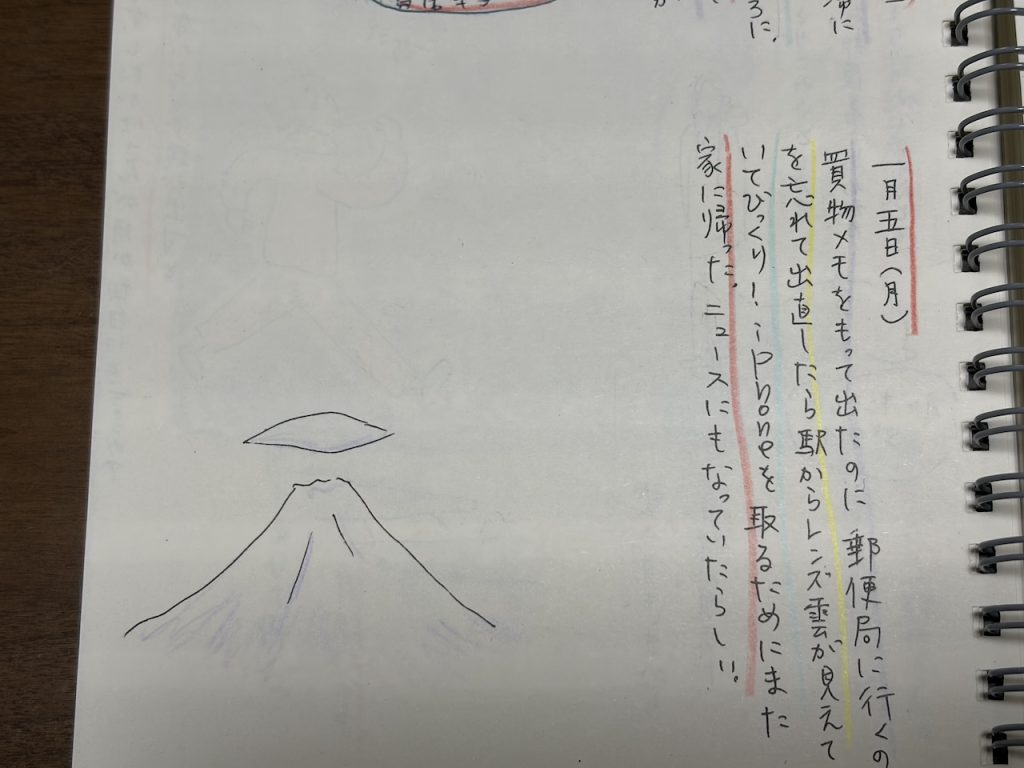 ろに、
一月五日(月)
買物メモをもって出たのに郵便局に行くの
を忘れて出直したら駅からレンズ雲が見えて
いてびっくり!iphoneを取るためにまた
家に帰った。ニュースにもなっていたらしい。